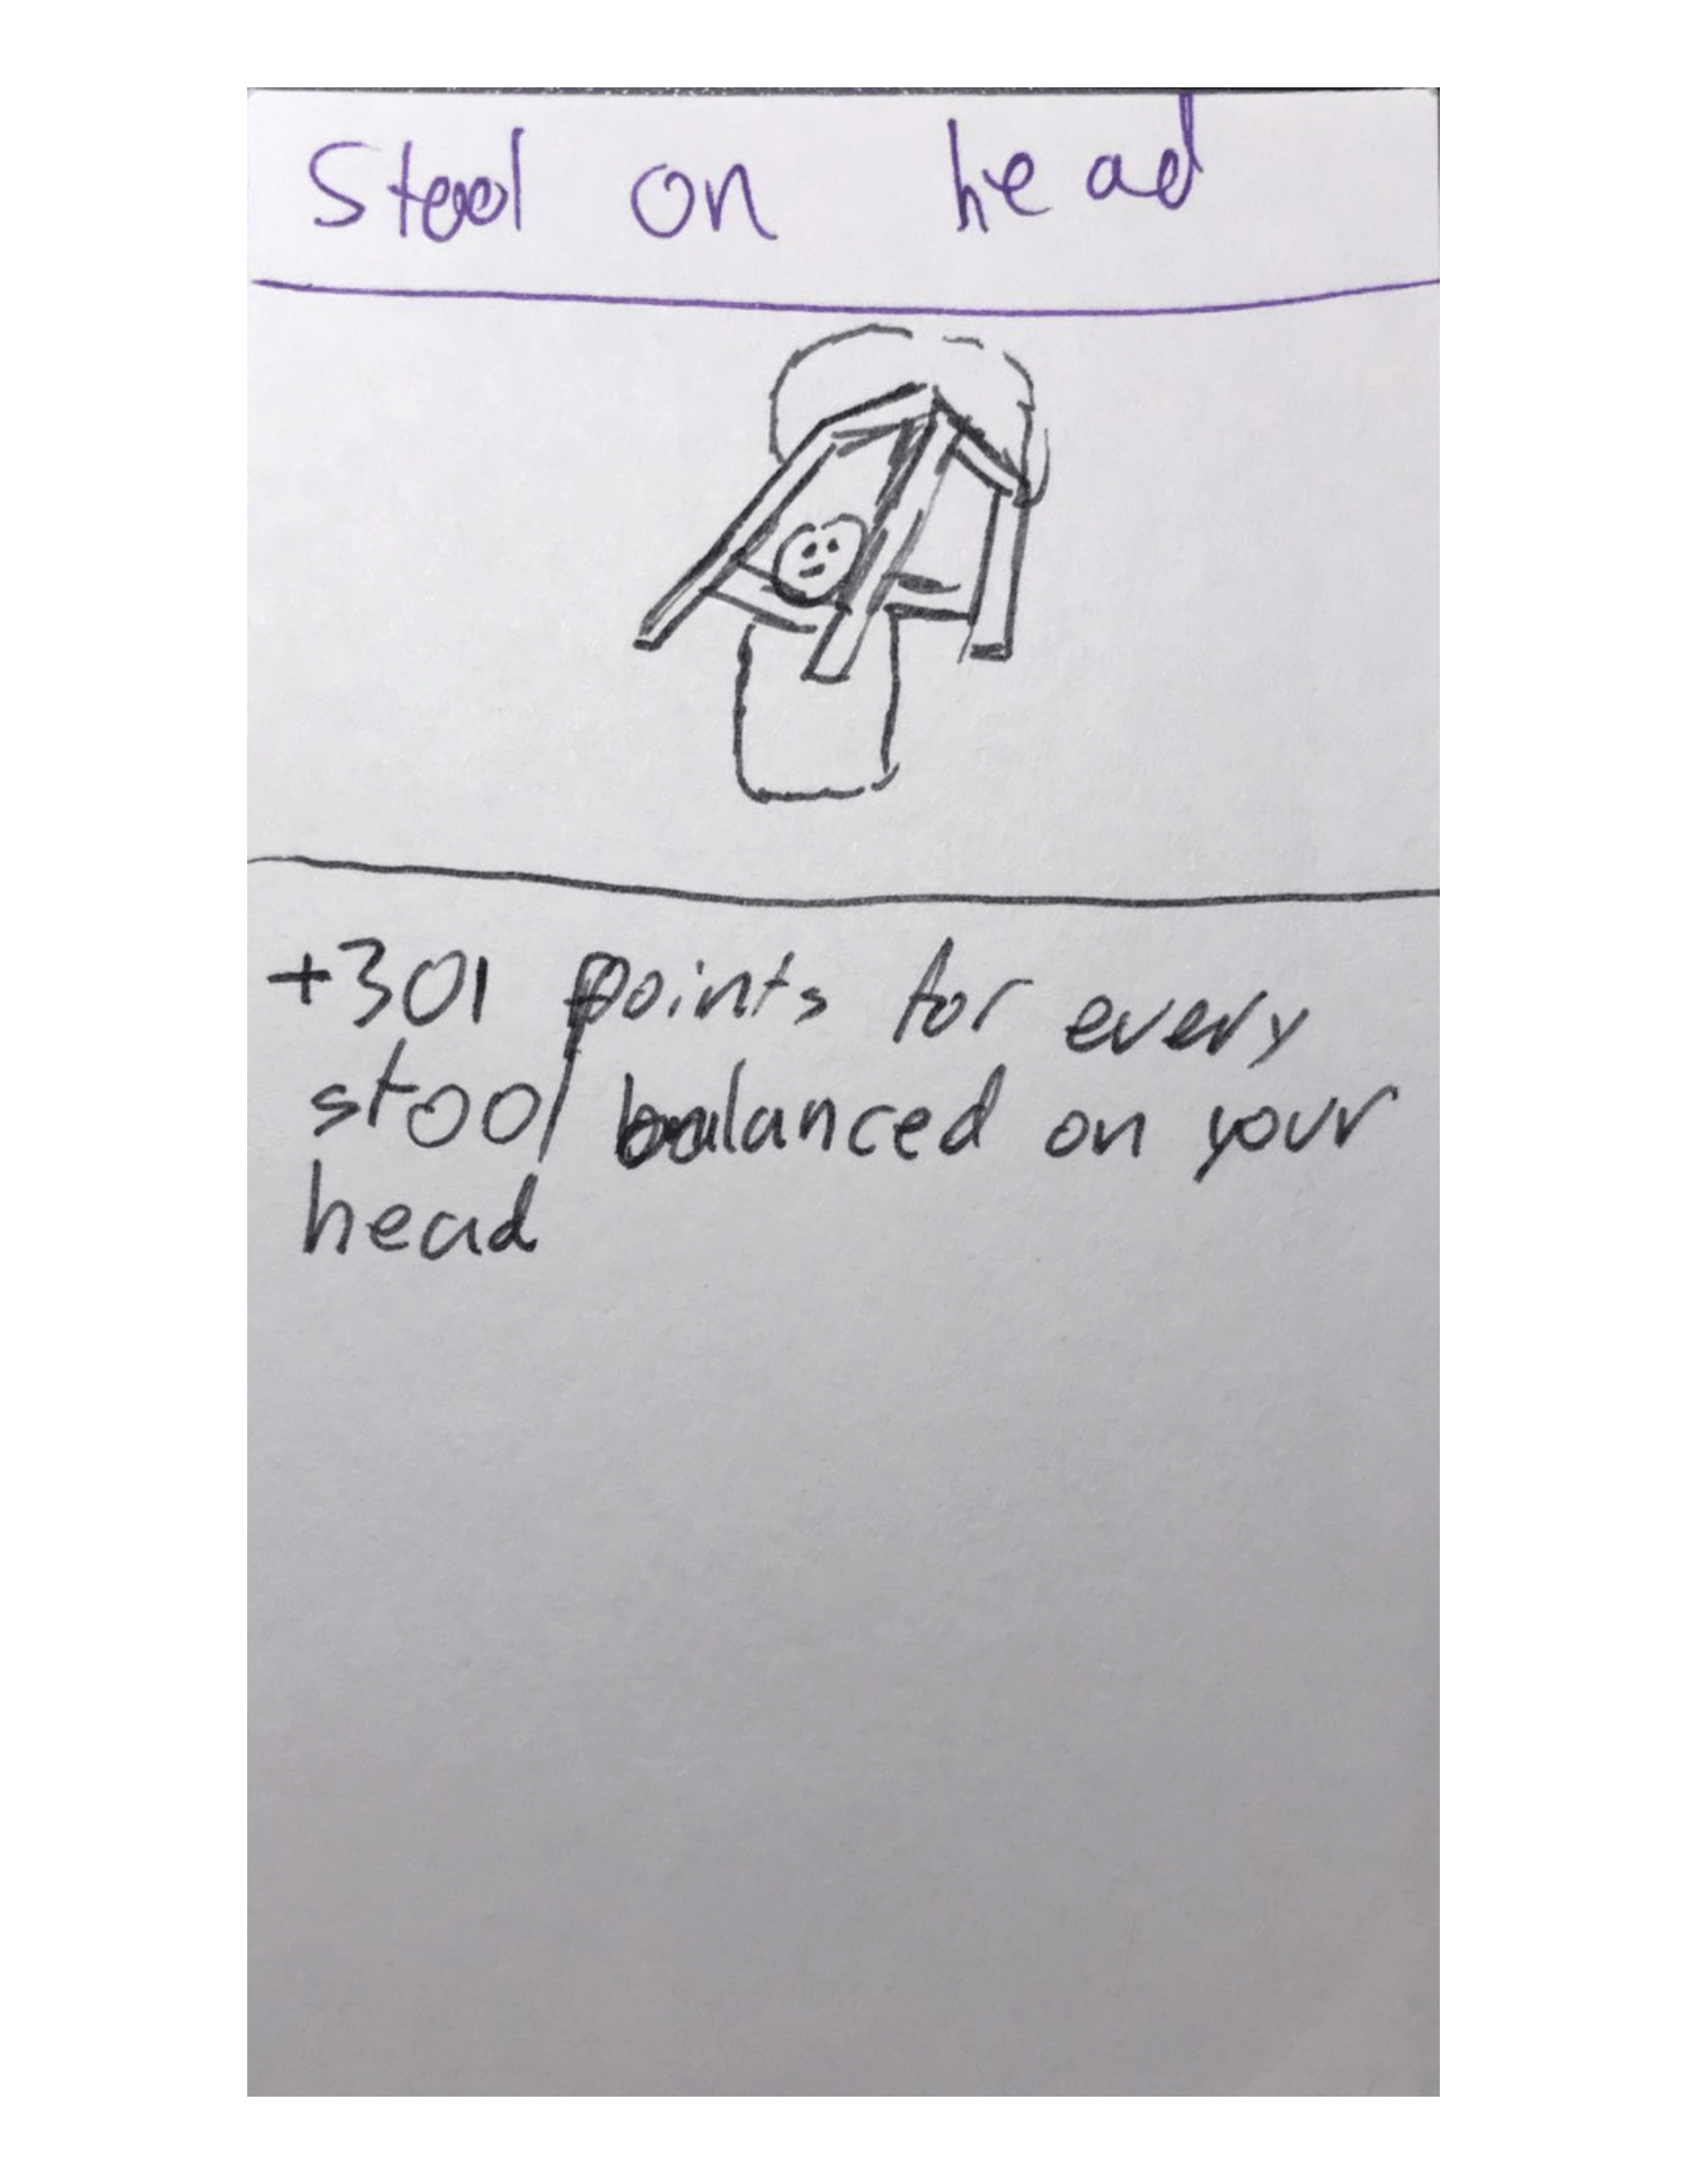 Stool on head
+301 points for every
stool balanced on your
head